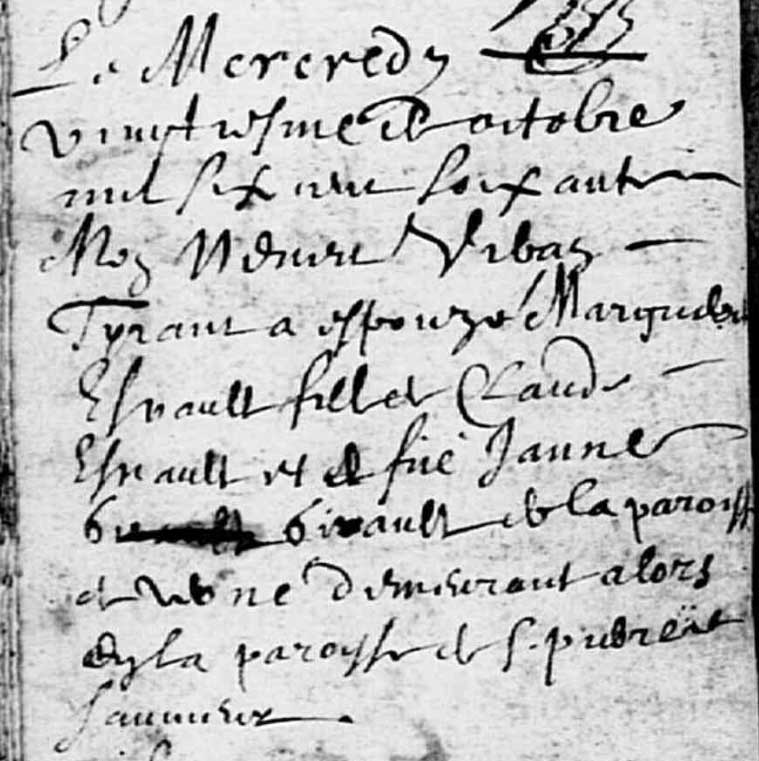 Le Mercredy
vingtiesme de octobre
mil six cent soixante
Moy Urban
Tyrant a espouzé Margueritte
Esnault fille de Claude
Esnault et de fue Janne
Girault de la paroisse
de demeurant alors
en la paroisse de S. pierre de
Saumeur.